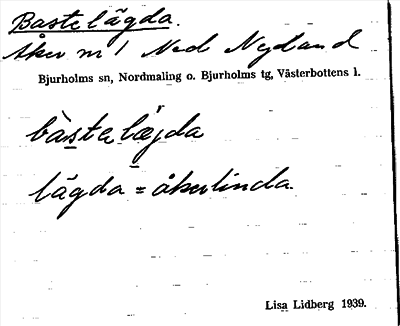 Bastelägda.
Åker nr 1 Ned Nyland
Bjurholms sn, Nordmaling o. Bjurholms tg, Västerbottens l.
bàstelæjda
lägda = åkerlinda.
Lisa Lidberg 1939.